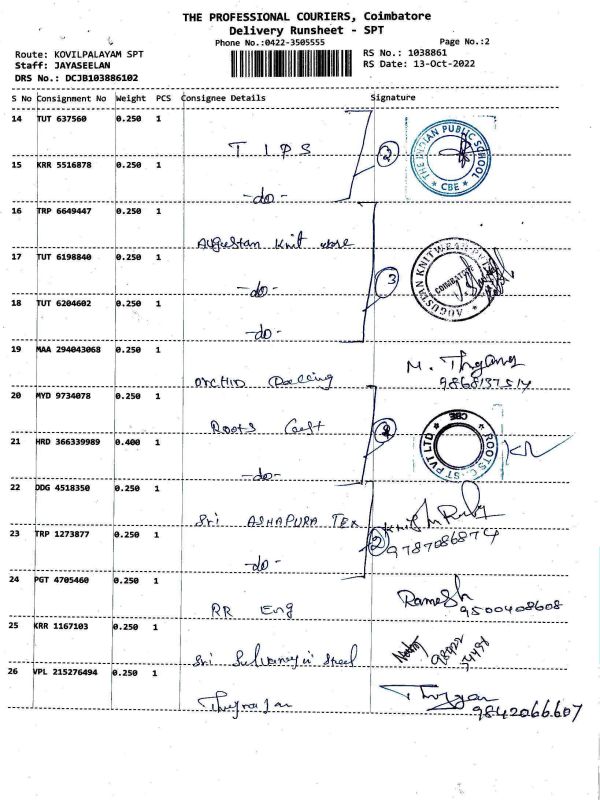 THE PROFESSIONAL COURIERS, Coimbatore
Delivery Runsheet - SPT
Phone No.:0422-3505555
Page No.:2
Route: KOVILPALAYAM SPT
RS No.: 1038861
Staff: JAYASEELAN
RS Date: 13-Oct-2022
DRS No.: DCJB103886102
S No Consignment No Weight PCS Consignee Details Signature
14 TUT 637560 0.250 1
TIPS
2
THE INDIAN PUBLIC SCHOOL
* CBE *
15 KRR 5516878 0.250 1
-do-
16 TRP 6649447 0.250 1
Augustan Knit
17 TUT 6198840 0.250 1
-do-
3
AUGUSTAN KNITWEAR
COIMBATORE
18 TUT 6204602 0.250 1
-do-
19 MAA 294043068 0.250 1
ORCHID
M.
20 MYD 9734078 0.250 1
Roots Cast
ROOTS CAST PVT LTD
CBE
21 HRD 366339989 0.400 1
-do-
22 DDG 4518350 0.250 1
Sri ASHAPURA TEX
23 TRP 1273877 0.250 1
-do-
2
9787086874
24 PGT 4705460 0.250 1
RR Eng
Ramesh
9500408608
25 KRR 1167103 0.250 1
Sri
26 VPL 215276494 0.250 1
9842066607